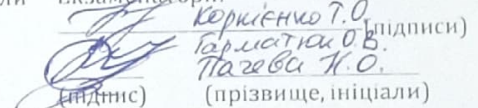 Корнієнко Т.О.
(підписи)
Гарматюк О.В.
Пачева Н.О.
(підпис) (прізвище, ініціали)